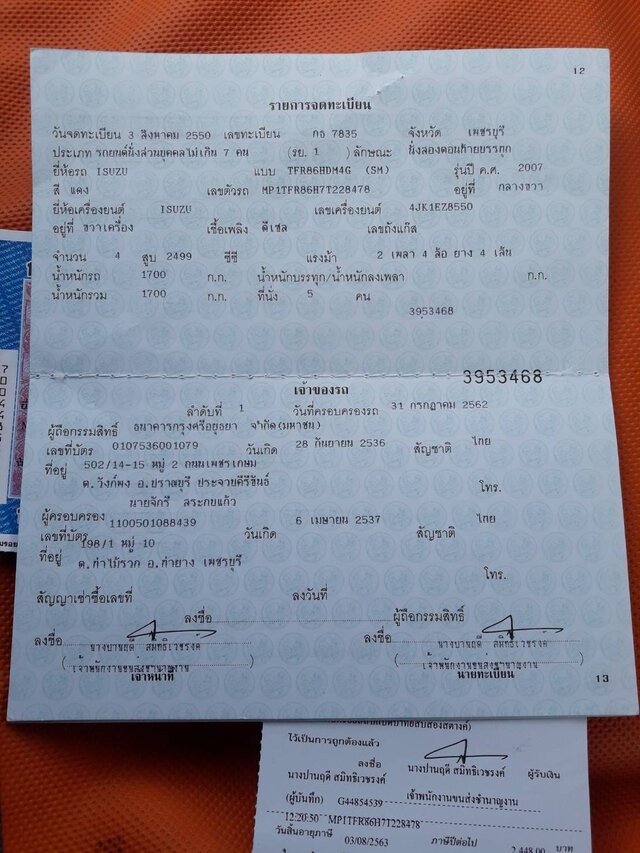 12
รายการจดทะเบียน
วันจดทะเบียน 3 สิงหาคม 2550 เลขทะเบียน กธ 7835 จังหวัด เพชรบุรี
ประเภท รถยนต์นั่งส่วนบุคคลไม่เกิน 7 คน (รย. 1 ) ลักษณะ นั่งสองตอนท้ายบรรทุก
ยี่ห้อรถ ISUZU แบบ TFR86HDM4G (SM) รุ่นปี ค.ศ. 2007
สี แดง เลขตัวรถ MP1TFR86H7T228478 อยู่ที่ กลางขวา
ยี่ห้อเครื่องยนต์ ISUZU เลขเครื่องยนต์ 4JK1EZ8550
อยู่ที่ ขวาเครื่อง เชื้อเพลิง ดีเซล เลขถังแก๊ส
จำนวน 4 สูบ 2499 ซีซี แรงม้า 2 เพลา 4 ล้อ ยาง 4 เส้น
น้ำหนักรถ 1700 ก.ก. น้ำหนักบรรทุก/น้ำหนักลงเพลา ก.ก.
น้ำหนักรวม 1700 ก.ก. ที่นั่ง 5 คน
3953468
3953468
เจ้าของรถ
ลำดับที่ 1 วันที่ครอบครองรถ 31 กรกฎาคม 2562
ผู้ถือกรรมสิทธิ์ ธนาคารกรุงศรีอยุธยา จำกัด(มหาชน)
เลขที่บัตร 0107536001079 วันเกิด 28 กันยายน 2536 สัญชาติ ไทย
ที่อยู่ 502/14-15 หมู่ 2 ถนนเพชรเกษม
ต.วังก์พง อ.ปราณบุรี ประจวบคีรีขันธ์ โทร.
นายจักรี สระกบแก้ว
ผู้ครอบครอง
เลขที่บัตร 1100501088439 วันเกิด 6 เมษายน 2537 สัญชาติ ไทย
ที่อยู่ 198/1 หมู่ 10
ต.ท่าไม้รวก อ.ท่ายาง เพชรบุรี โทร.
สัญญาเช่าซื้อเลขที่ ลงวันที่
ลงชื่อ ผู้ถือกรรมสิทธิ์
ลงชื่อ ลงชื่อ
นางปานฤดี สมิทธิเวชรงค์ นางปานฤดี สมิทธิเวชรงค์
(เจ้าพนักงานขนส่งชำนาญงาน) (เจ้าพนักงานขนส่งชำนาญงาน)
เจ้าหน้าที่ นายทะเบียน
13
ไว้เป็นการถูกต้องแล้ว
ลงชื่อ
นางปานฤดี สมิทธิเวชรงค์ นางปานฤดี สมิทธิเวชรงค์ ผู้รับเงิน
(ผู้บันทึก) G44854539 เจ้าพนักงานขนส่งชำนาญงาน
12:20:50 MP1TFR86H7T228478
วันสิ้นอายุภาษี 03/08/2563 ภาษีปีต่อไป 2,448.00 บาท